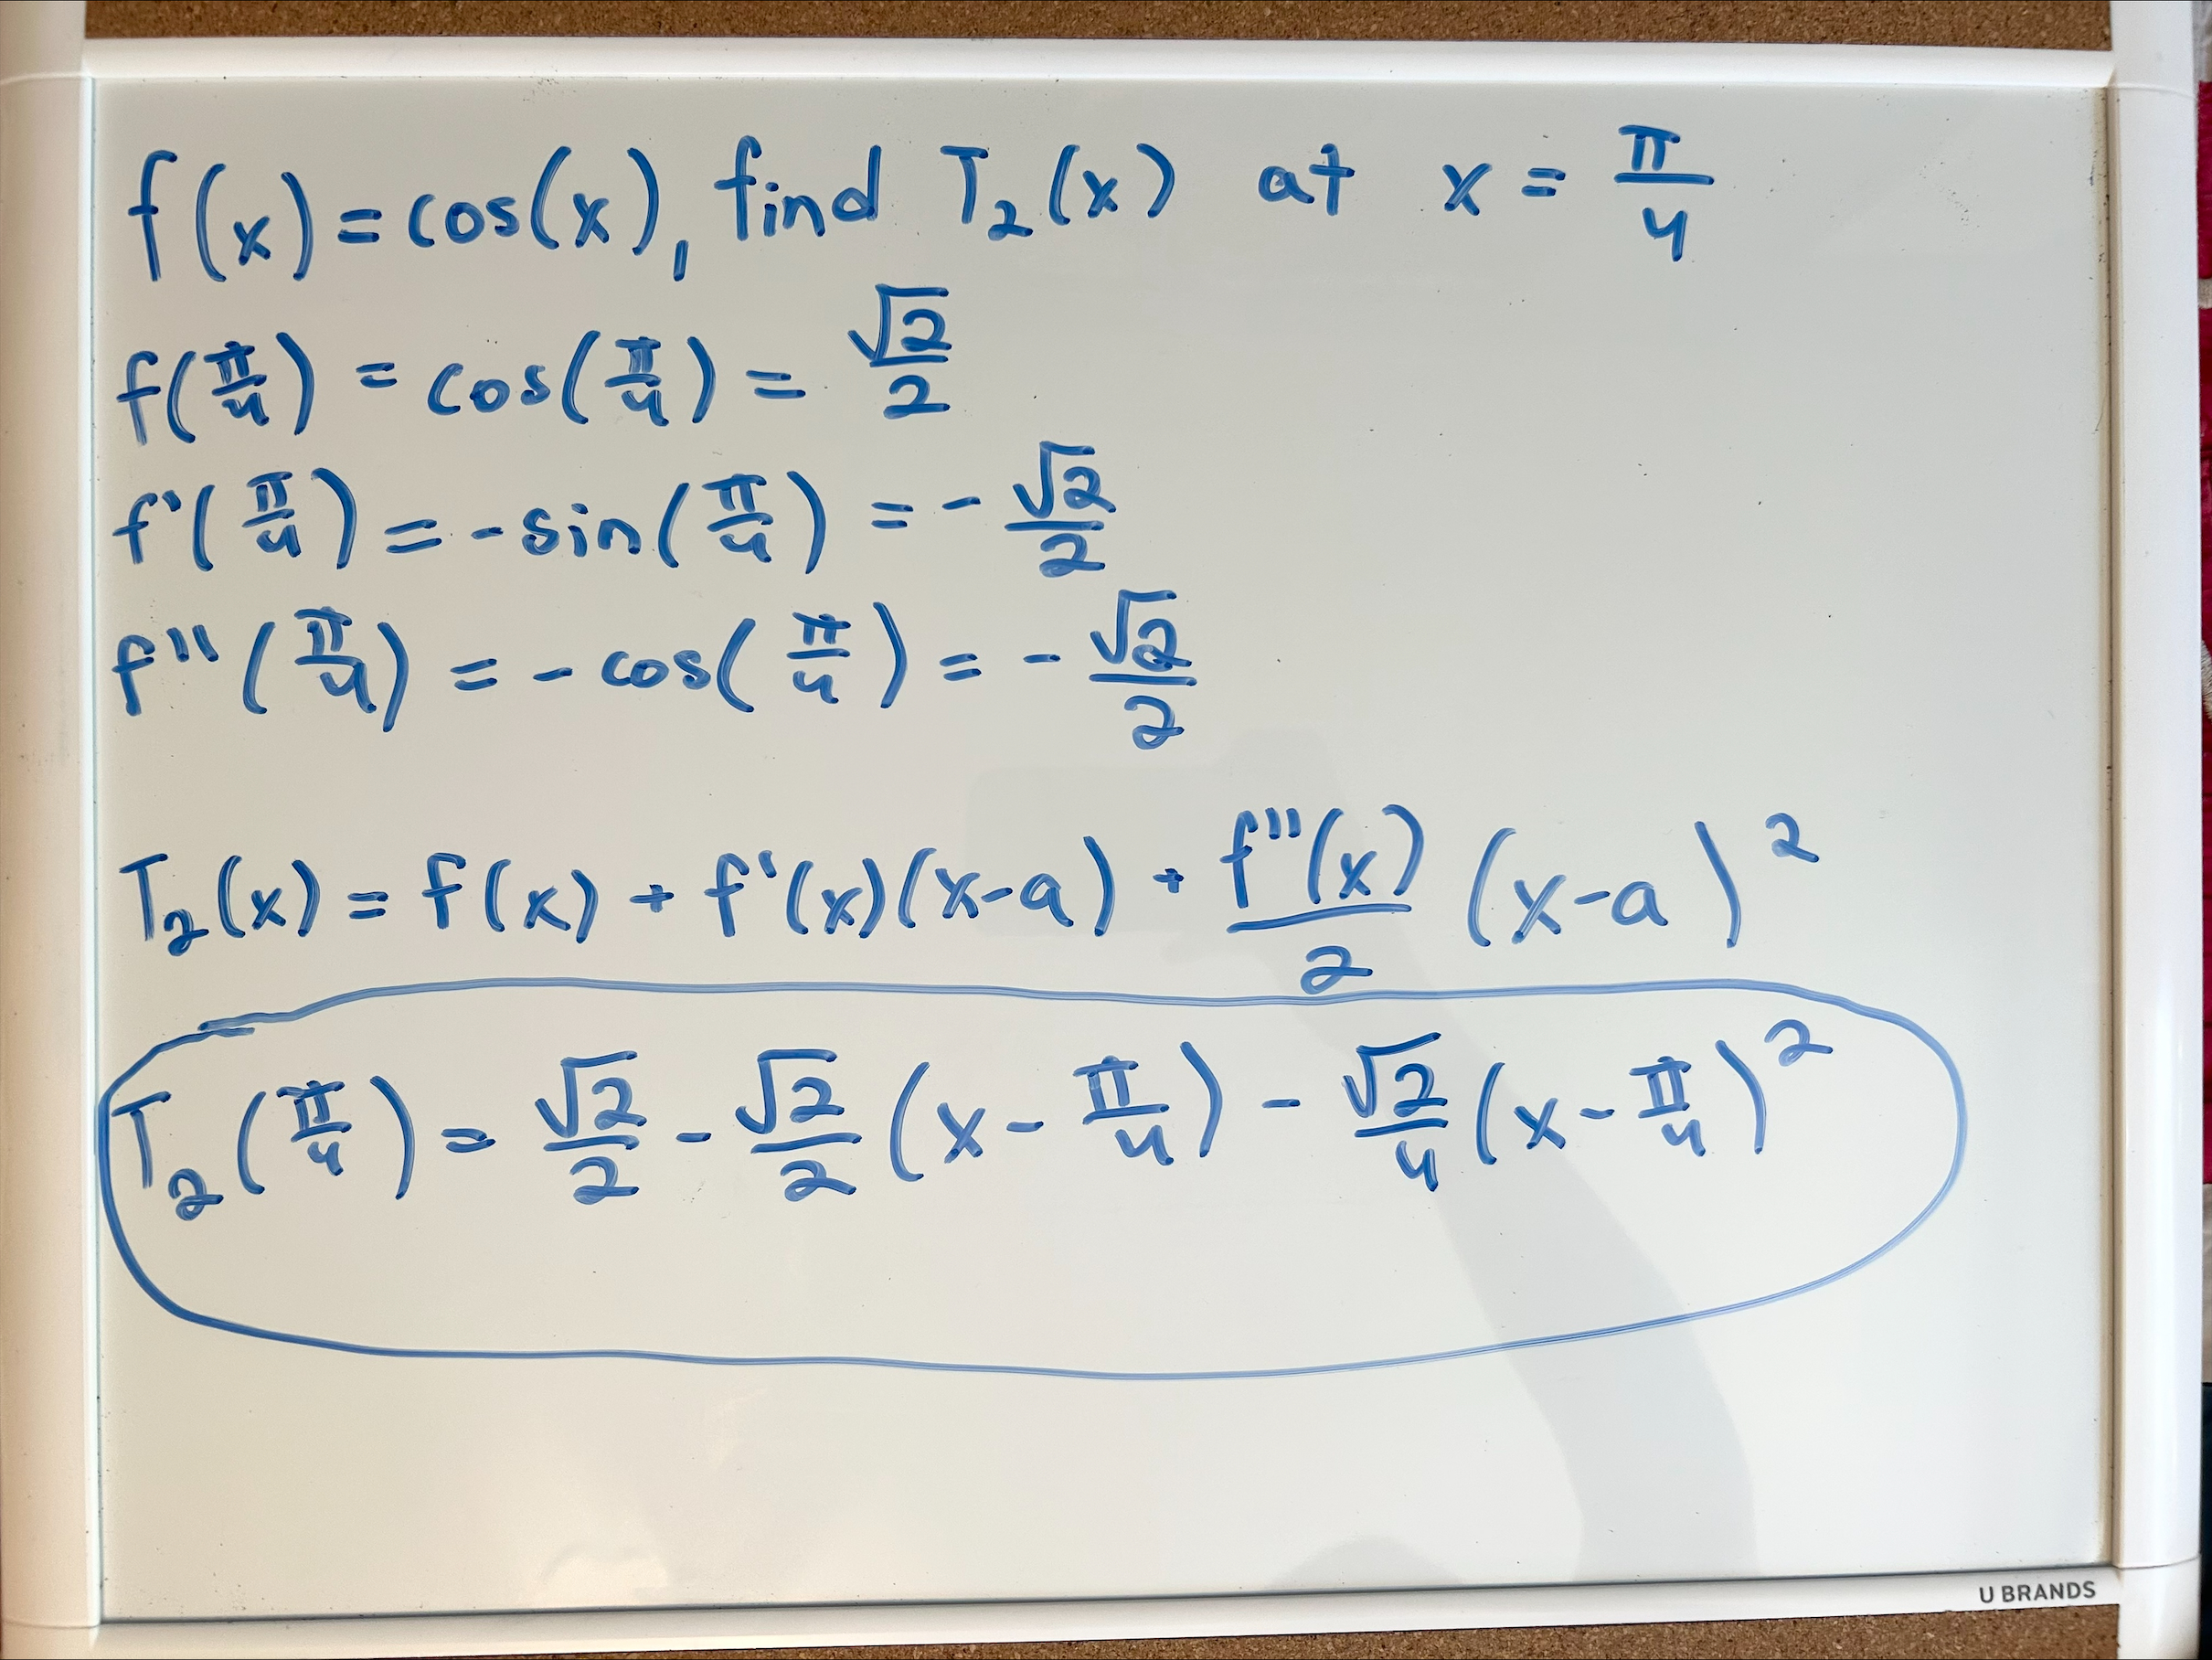 f(x) = cos(x), find T₂(x) at x = π/4
f(π/4) = cos(π/4) = √2/2
f'(π/4) = -sin(π/4) = -√2/2
f''(π/4) = -cos(π/4) = -√2/2
T₂(x) = f(x) + f'(x)(x-a) + f''(x)/2 (x-a)²
T₂(π/4) = √2/2 - √2/2 (x - π/4) - √2/4 (x - π/4)²
U BRANDS